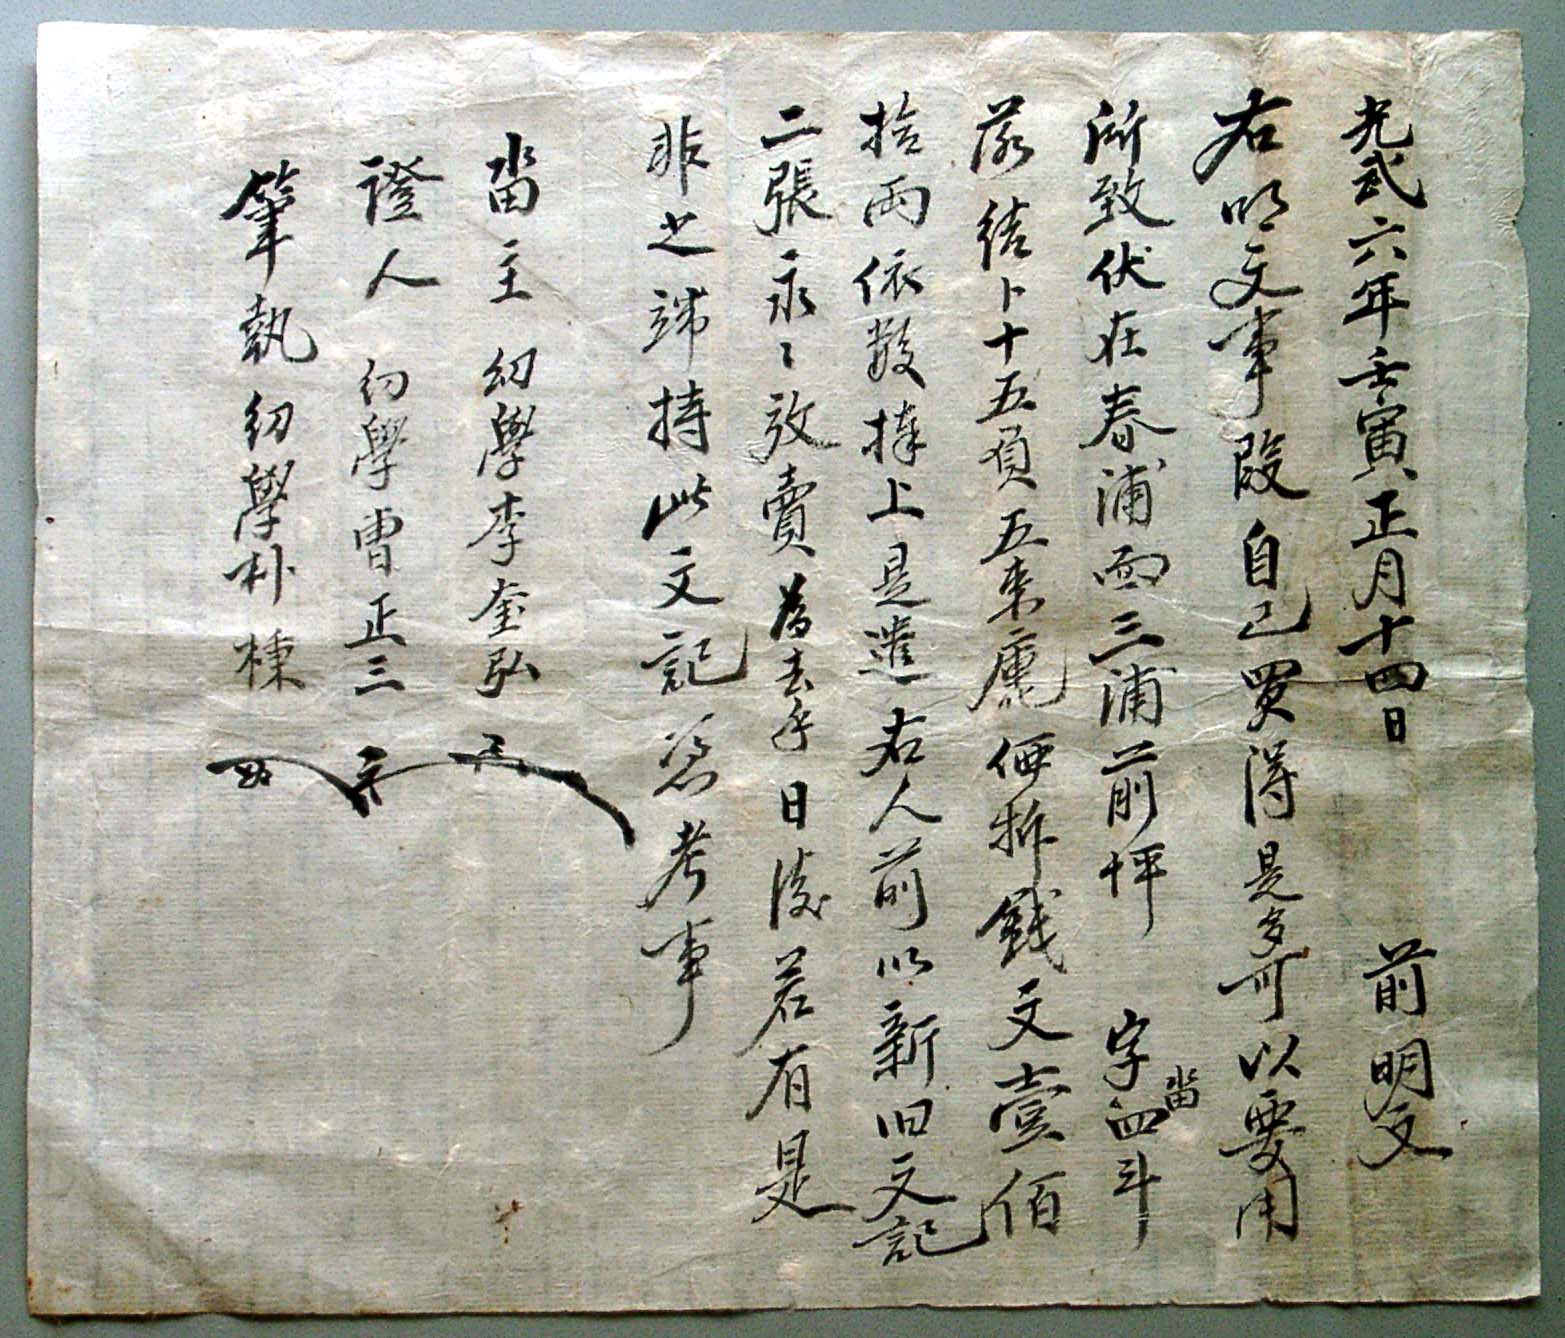 光武六年壬寅正月十四日 前明文
右明文事段自己買得是多可以要用
所致伏在春浦面三浦前坪 字畓四斗
落結卜十五負五束廤価折錢文壹佰
拾兩依數捧上是遣右人前以新旧文記
二張永々放賣為去乎日後若有是
非之端持此文記憑考事
畓主 幼學李奎弘
證人 幼學曺正三
筆執幼學朴棟